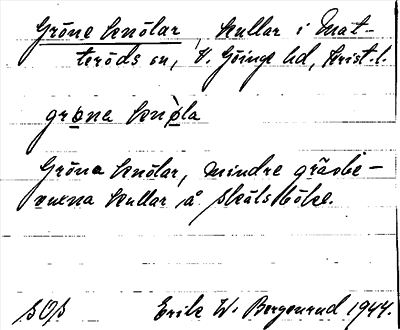 Gröne knölar, kullar i Mat-
teröds sn, V. Göinge hd, Krist. l.
grøna knø̀la
Gröna knölar, mindre gräsbe-
vuxna kullar å Skälsböke.
SOS Erik W. Bergenrud 1944.